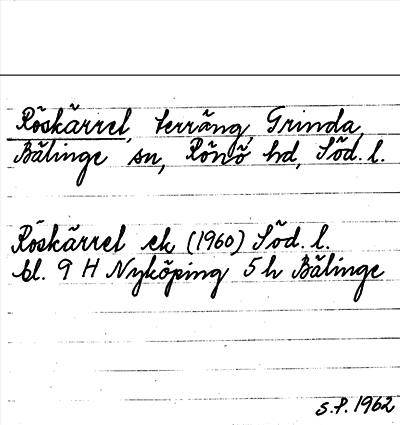 Röskärret, terräng, Grinda,
Bälinge sn, Rönö hd, Söd. l.
Röskärret ek (1960) Söd. l.
bl. 9 H Nyköping 5 h Bälinge
S.P. 1962